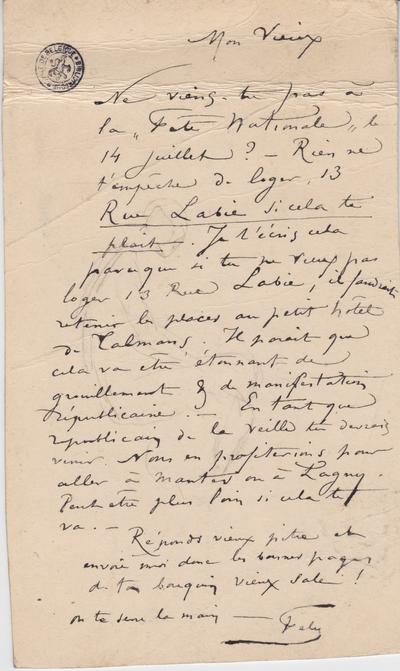 Mon Vieux
Ne viens-tu pas à
la „Fête Nationale„ le
14 juillet ? – Rien ne
t'empêche de loger, 13
Rue Labie si cela te
plait. Je t'écris cela
parceque si tu ne veux pas
loger 13 Rue Labie, il faudrait
retenir les places au petit hôtel
de Talmans. Il parait que
cela va être étonnant de
grouillement & de manifestation
républicaine. – En tant que
républicain de la veille tu devrais
venir. Nous en profiterions pour
aller à Mantes ou à Lagny.
Peut-être plus loin si cela te
va. –
Réponds vieux pitre et
envoie moi donc les bonnes pages
de ton bouquin vieux sale !
on te serre la main — Fely